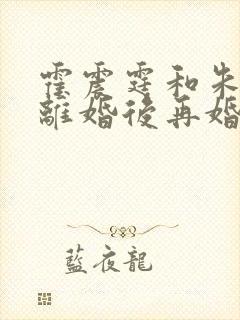 霍震霆和朱
離婚後再婚
藍夜龍